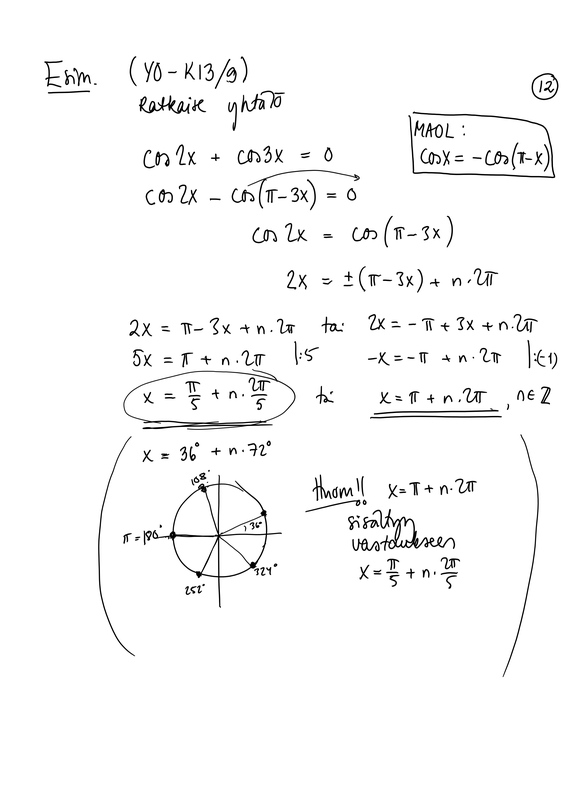 Esim. (YO-K13/9)
12
Ratkaise yhtälö
MAOL:
cosx = -cos(π-x)
cos2x + cos3x = 0
cos2x - cos(π-3x) = 0
cos 2x = cos(π-3x)
2x = ±(π-3x) + n·2π
2x = π-3x+n·2π tai 2x = -π+3x+n·2π
5x = π + n·2π |:5 -x = -π + n·2π |:(-1)
x = π/5 + n·2π/5 tai x = π + n·2π, n∈ℤ
x = 36° + n·72°
108°
36°
π = 180°
252°
324°
Huom!! x = π + n·2π
sisältyy
vastaukseen
x = π/5 + n·2π/5